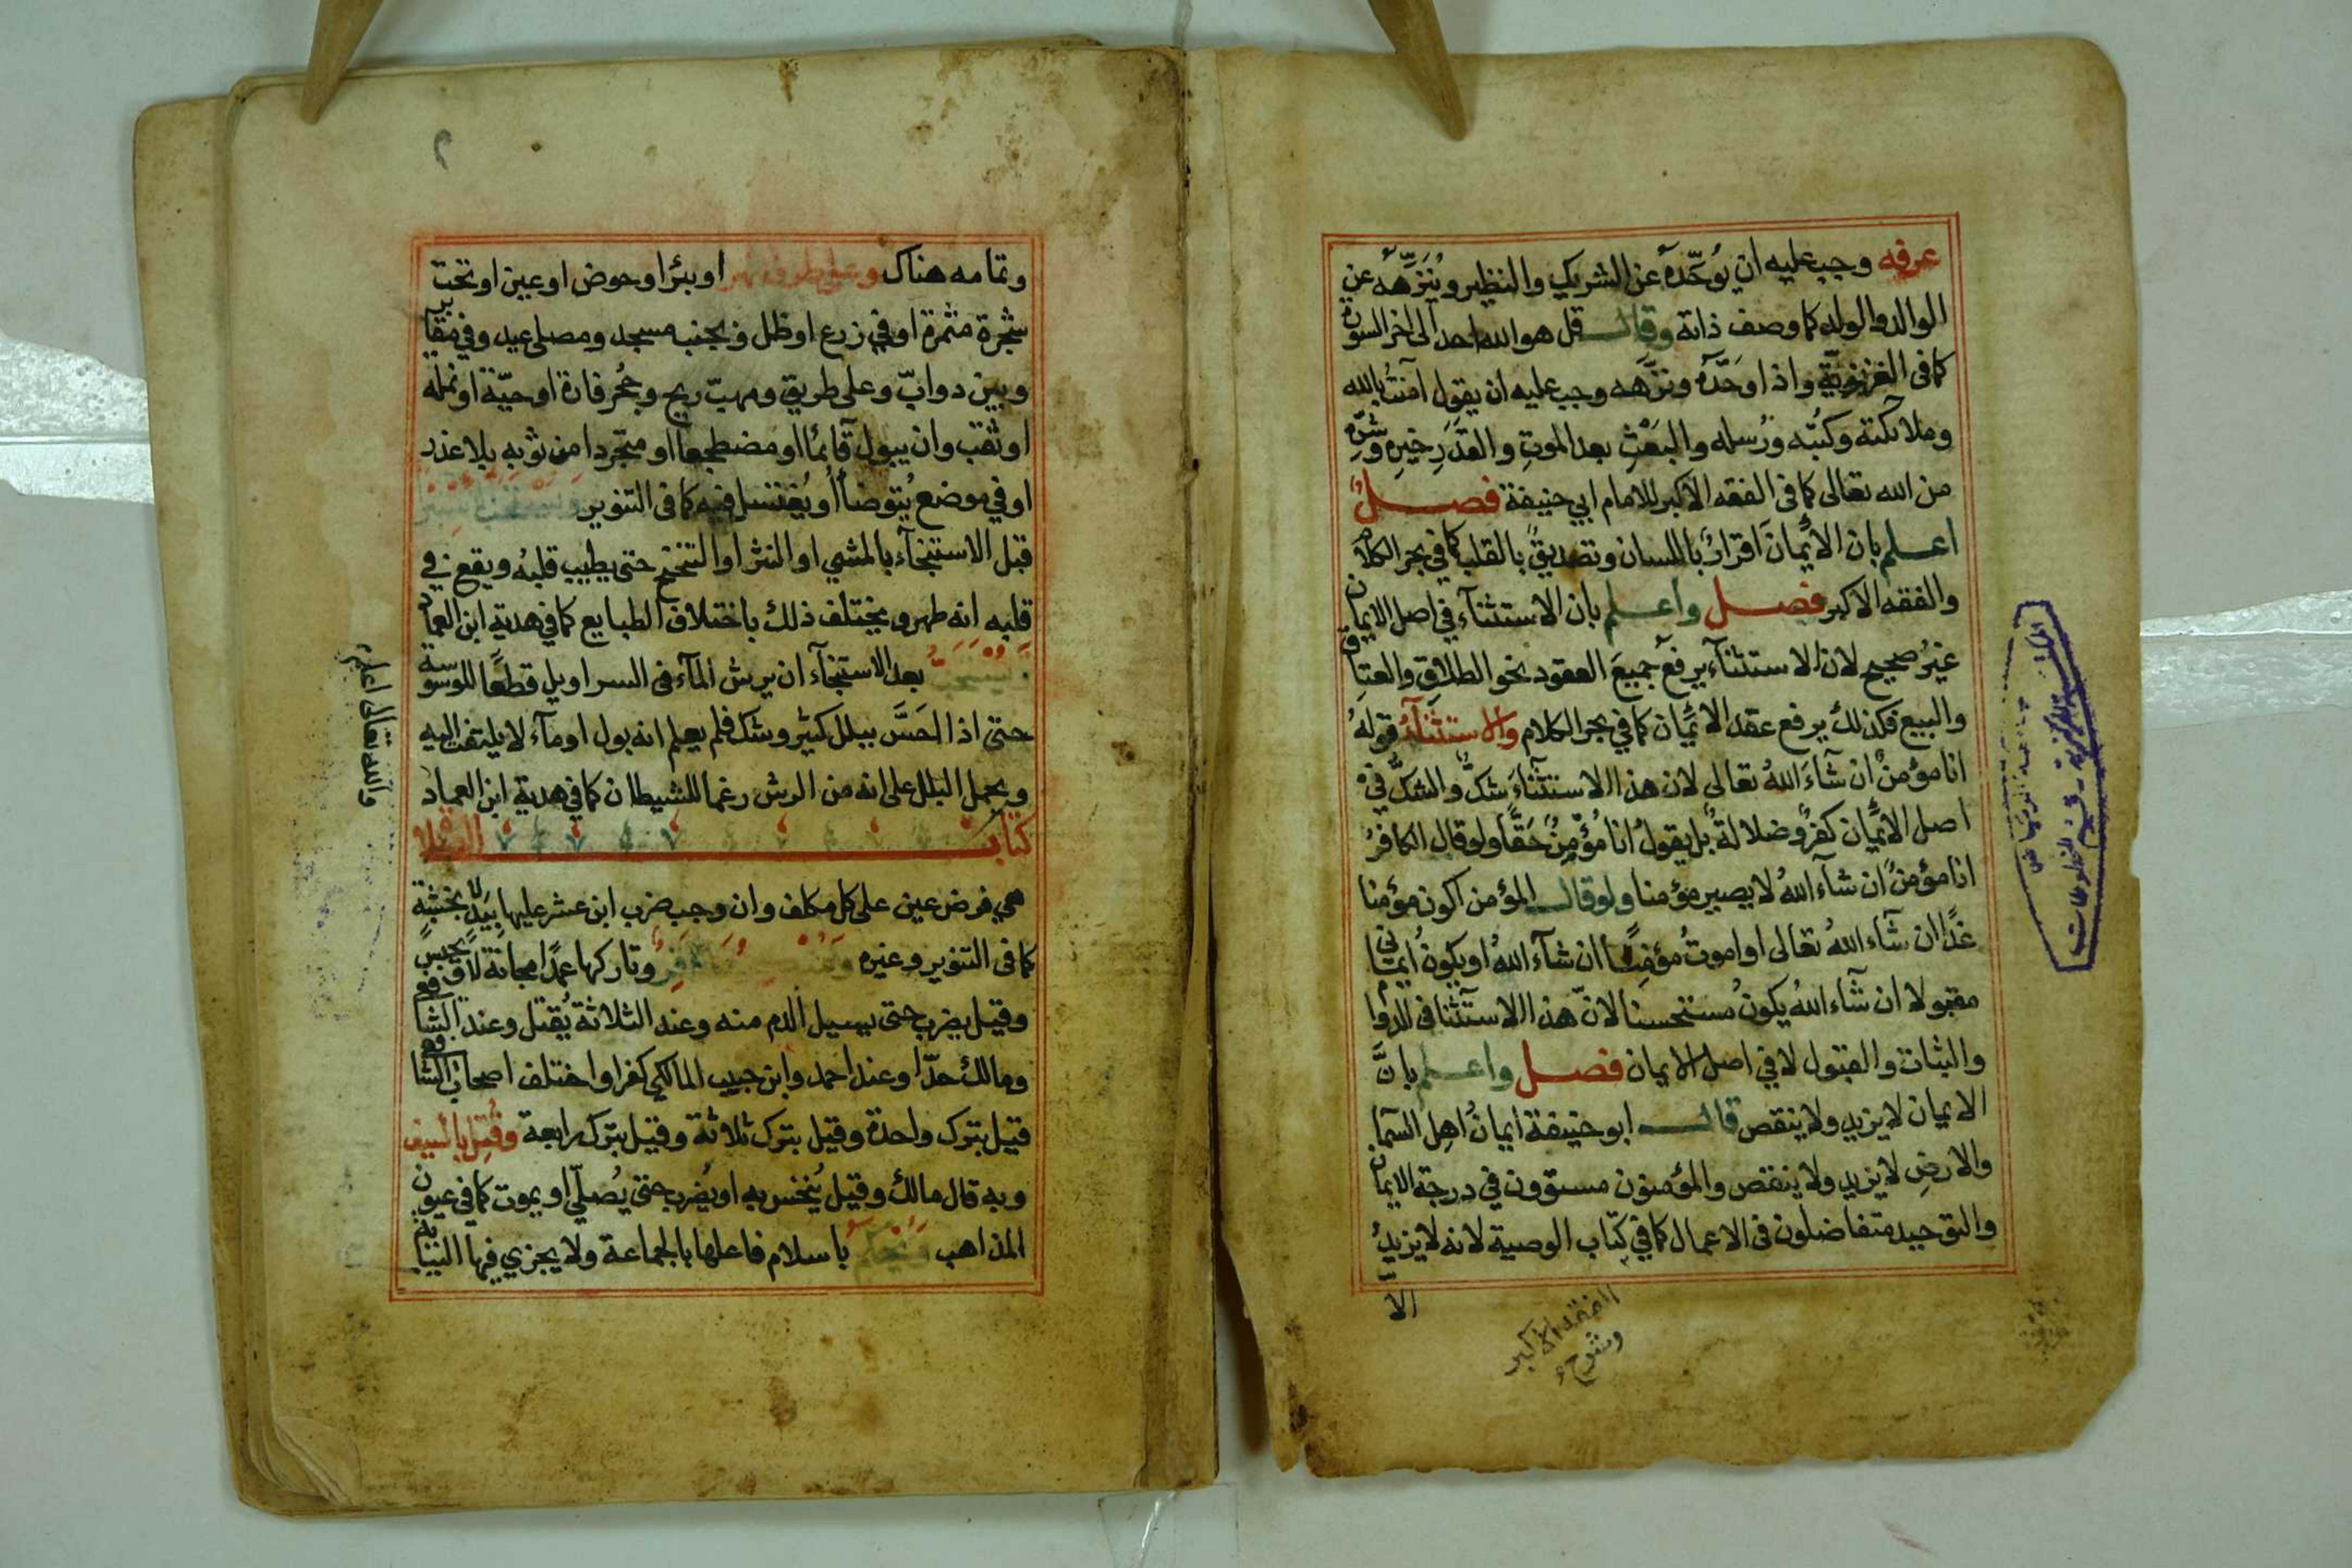 عرفه وجب عليه ان يُوحّدهُ عن الشريك والنظير ويُنزّهه عن
الوالد والولد كما وصف ذاته وقال قل هو الله احد الى اخر السورة
كما فى الغزنوية واذا وحَّده ونزّهه وجب عليه ان يقول آمنتُ بالله
وملائكته وكتبه ورُسله والبَعْثِ بعد الموتِ والقدَرِ خيرِه وشرِّه
من الله تعالى كما فى الفقه الاكبر للامام ابي حنيفة فصل
اعلم بان الايمانَ اقرارٌ باللسان وتصديقٌ بالقلب كما في بحر الكلام
والفقه الاكبر فصل واعلم بان الاستثنآء في اصل الايمان
غيرُ صحيح لان الاستثنآء يرفع جميعَ العقود نحو الطلاقِ والعتاق
والبيع فكذلك يرفع عقد الايمان كما في بحر الكلام والاستثنآءُ قولهُ
انا مؤمنٌ ان شآءَ اللهُ تعالى لان هذا الاستثنآءَ شكٌ والشكُّ في
اصل الايمان كفرٌ وضلالةٌ بل يقولُ انا مُؤمِنٌ حَقًّا ولو قال الكافرُ
انا مؤمنٌ ان شآء اللهُ لا يصير مؤمنا ولو قال المؤمن اكون مؤمنا
غدًا ان شآء اللهُ تعالى او اموتُ مؤمنًا ان شآء اللهُ او يكونُ ايمانى
مقبولا ان شآء اللهُ يكونُ مستحسنا لانّ هذا الاستثنا فى الدوام
والثبات والقبول لا في اصل الايمان فصل واعلم بانَّ
الايمان لا يزيد ولا ينقص قال ابو حنيفة ايمانُ اهلِ السما
والارضِ لا يزيد ولا ينقص والمؤمنون مستوون في درجة الايمان
والتوحيد متفاضلون فى الاعمال كما في كتاب الوصية لانه لا يزيدُ
الا
الفقه الاكبر
وشرحه
وتمامه هناك وعلى طرف نهر او بئر او حوض او عين او تحت
شجرة مثمرة او في زرع او ظل وبجنب مسجد ومصلى عيد وفي مقابر
وبين دوابّ وعلى طريق ومهبّ ريح وجُحر فارة او حيّة او نملة
او ثقب وان يبول قآئمًا او مضطجعا او متجردا من ثوبه بلا عذر
او في موضع يُتوضأ او يُغتسل فيه كما فى التنوير
قبل الاستنجآء بالمشي او النثر او التنحنح حتى يطيب قلبهُ ويقع في
قلبه انه طهر ويختلف ذلك باختلاف الطبايع كما في هدية ابن العماد
ويستحبّ بعد الاستنجآء ان يرش المآء فى السراويل قطعًا للوسوسة
حتى اذا احَسَّ ببلل كثير وشك فلم يعلم انه بول او مآء لا يلتفت اليه
ويحمل البلل على انه من الرش رغما للشيطان كما في هدية ابن العماد
كتاب الصلا
هي فرض عين على كل مكلف وان وجب ضرب ابن عشر عليها بيدٍ لا بخشبةٍ
كما فى التنوير وغيره وتاركها عمدًا مجانة فاسق يحبس
وقيل يضرب حتى يسيل الدم منه وعند الثلاثة يُقتل وعند الشافعي
ومالك حدّا وعند احمد وابن حبيب المالكي كفرا واختلف اصحاب الشافعي
قيل بترك واحدة وقيل بترك ثلاثة وقيل بترك رابعة وقُتِل بالسيف
وبه قال مالك وقيل يُنخس به او يُضرب حتى يُصلّي او يموت كما في عيون
المذاهب ويُحكم باسلام فاعلها بالجماعة ولا يجزي فيها النيابة
والله تعالى اعلم